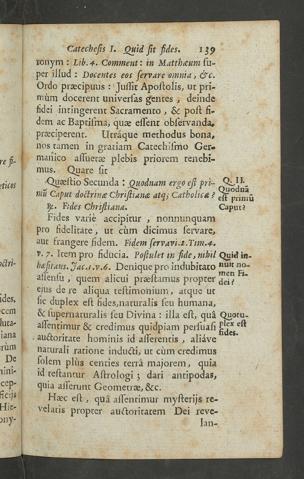 Catechesis I. Quid sit fides. 139
ronym : Lib. 4. Comment: in Matthæum su-
per illud : Docentes eos servare omnia, &c.
Ordo præcipuus : Jussit Apostolis, ut pri-
mùm docerent universas gentes, deinde
fidei intingerent Sacramento, & post fi-
dem ac Baptisma, quæ essent observanda,
præciperent. Utráque methodus bona,
nos tamen in gratiam Catechismo Ger-
manico assuetæ plebis priorem tenebi-
mus. Quare sit
Quæstio Secunda : Quodnam ergo est pri-
mũ Caput doctrinæ Christianæ atq; Catholicæ?
℞. Fides Christiana.
Q. II.
Quodnã
est primũ
Caput?
Fides variè accipitur, nonnunquam
pro fidelitate, ut cùm dicimus servare,
aut frangere fidem. Fidem servavi. 2. Tim. 4.
v. 7. Item pro fiducia. Postulet in fide, nihil
hæsitans. Jac. 1. v. 6. Denique pro indubitato
assensu, quem alicui præstamus propter
ejus de re aliqua testimonium, atque ut
sic duplex est fides, naturalis seu humana,
& supernaturalis seu Divina : illa est, quâ
assentimur & credimus quidpiam persuasi
auctoritate hominis id asserentis, aliáve
naturali ratione inducti, ut cùm credimus
solem plùs centies terrâ majorem, quia
id testantur Astrologi ; dari antipodas,
quia asserunt Geometræ, &c.
Quid in-
nuit no-
men Fi-
dei?
Quotu-
plex est
fides.
Hæc est, quâ assentimur mysterijs re-
velatis propter auctoritatem Dei reve-
lan-